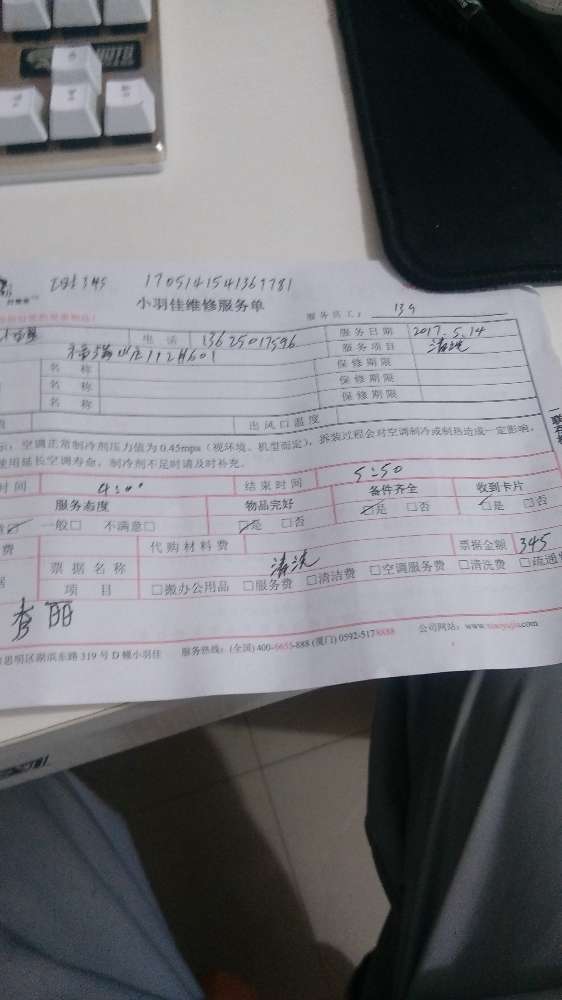 170514154136781
小羽佳维修服务单
服务员工: 139
电话 13625017596 服务日期 2017.5.14
112#601 服务项目 清洗
名称 保修期限
名称 保修期限
名称 保修期限
出风口温度
示：空调正常制冷剂压力值为0.45mpa（视环境、机型而定），拆装过程会对空调制冷或制热造成一定影响，
使用延长空调寿命，制冷剂不足时请及时补充。
时间 4:00 结束时间 5:50
服务态度 物品完好 备件齐全 收到卡片
一般□ 不满意□ □是 □否 □是 □否 □是 □否
费 代购材料费 票据金额 345
票据名称 清洗
项目 □搬办公用品 □服务费 □清洁费 □空调服务费 □清洗费 □疏通
思明区湖滨东路319号D幢小羽佳 服务热线：(全国)400-6655-888 (厦门) 0592-5178888 公司网站：www.xiaoyujia.com